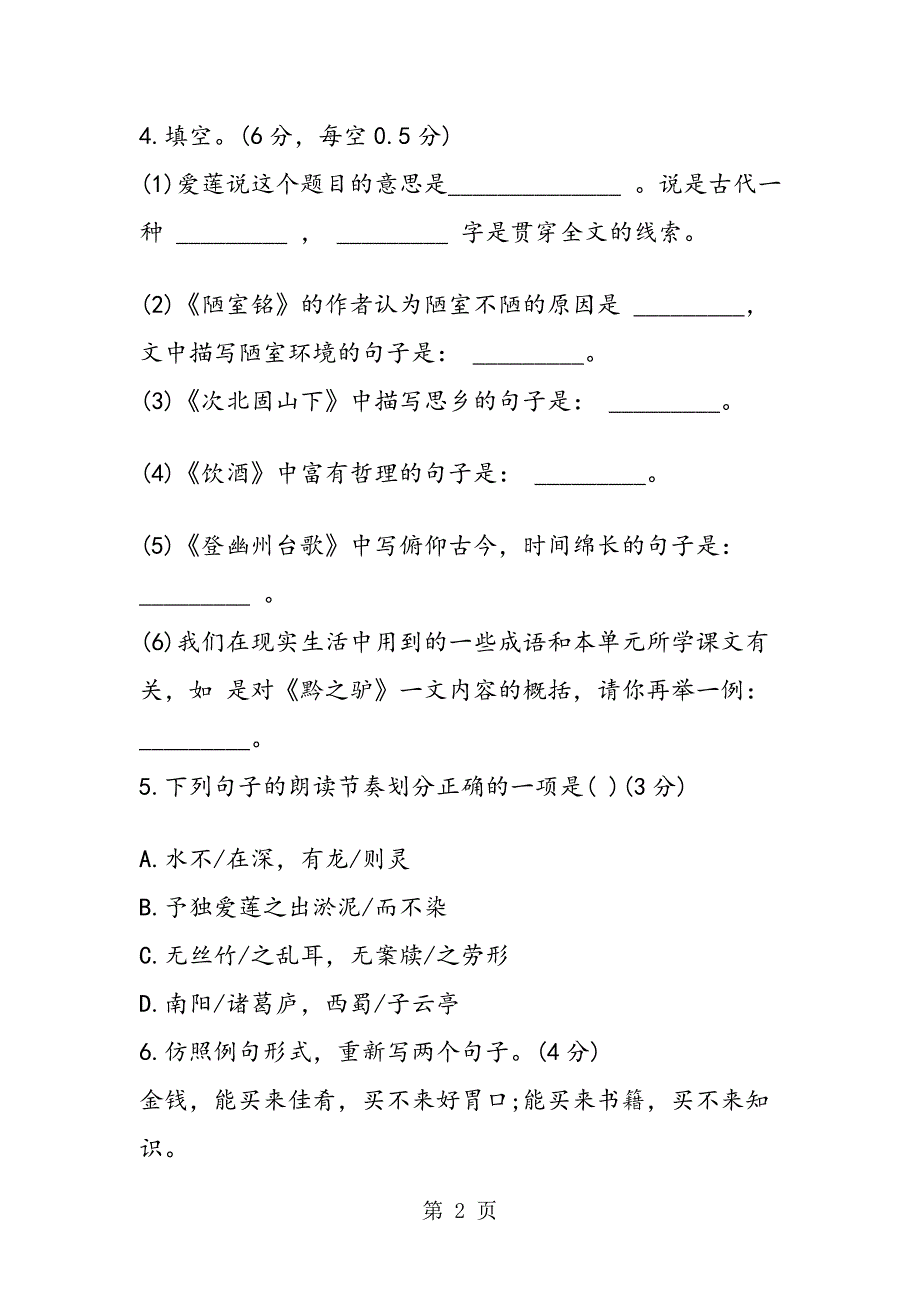 4.填空。(6分，每空0.5分)
(1)爱莲说这个题目的意思是______________ 。说是古代一
种 _________ ， _________ 字是贯穿全文的线索。
(2)《陋室铭》的作者认为陋室不陋的原因是 _________，
文中描写陋室环境的句子是： _________。
(3)《次北固山下》中描写思乡的句子是： _________。
(4)《饮酒》中富有哲理的句子是： _________。
(5)《登幽州台歌》中写俯仰古今，时间绵长的句子是：
_________ 。
(6)我们在现实生活中用到的一些成语和本单元所学课文有
关，如 是对《黔之驴》一文内容的概括，请你再举一例：
_________。
5.下列句子的朗读节奏划分正确的一项是( )(3分)
A.水不/在深，有龙/则灵
B.予独爱莲之出淤泥/而不染
C.无丝竹/之乱耳，无案牍/之劳形
D.南阳/诸葛庐，西蜀/子云亭
6.仿照例句形式，重新写两个句子。(4分)
金钱，能买来佳肴，买不来好胃口;能买来书籍，买不来知
识。
第 2 页